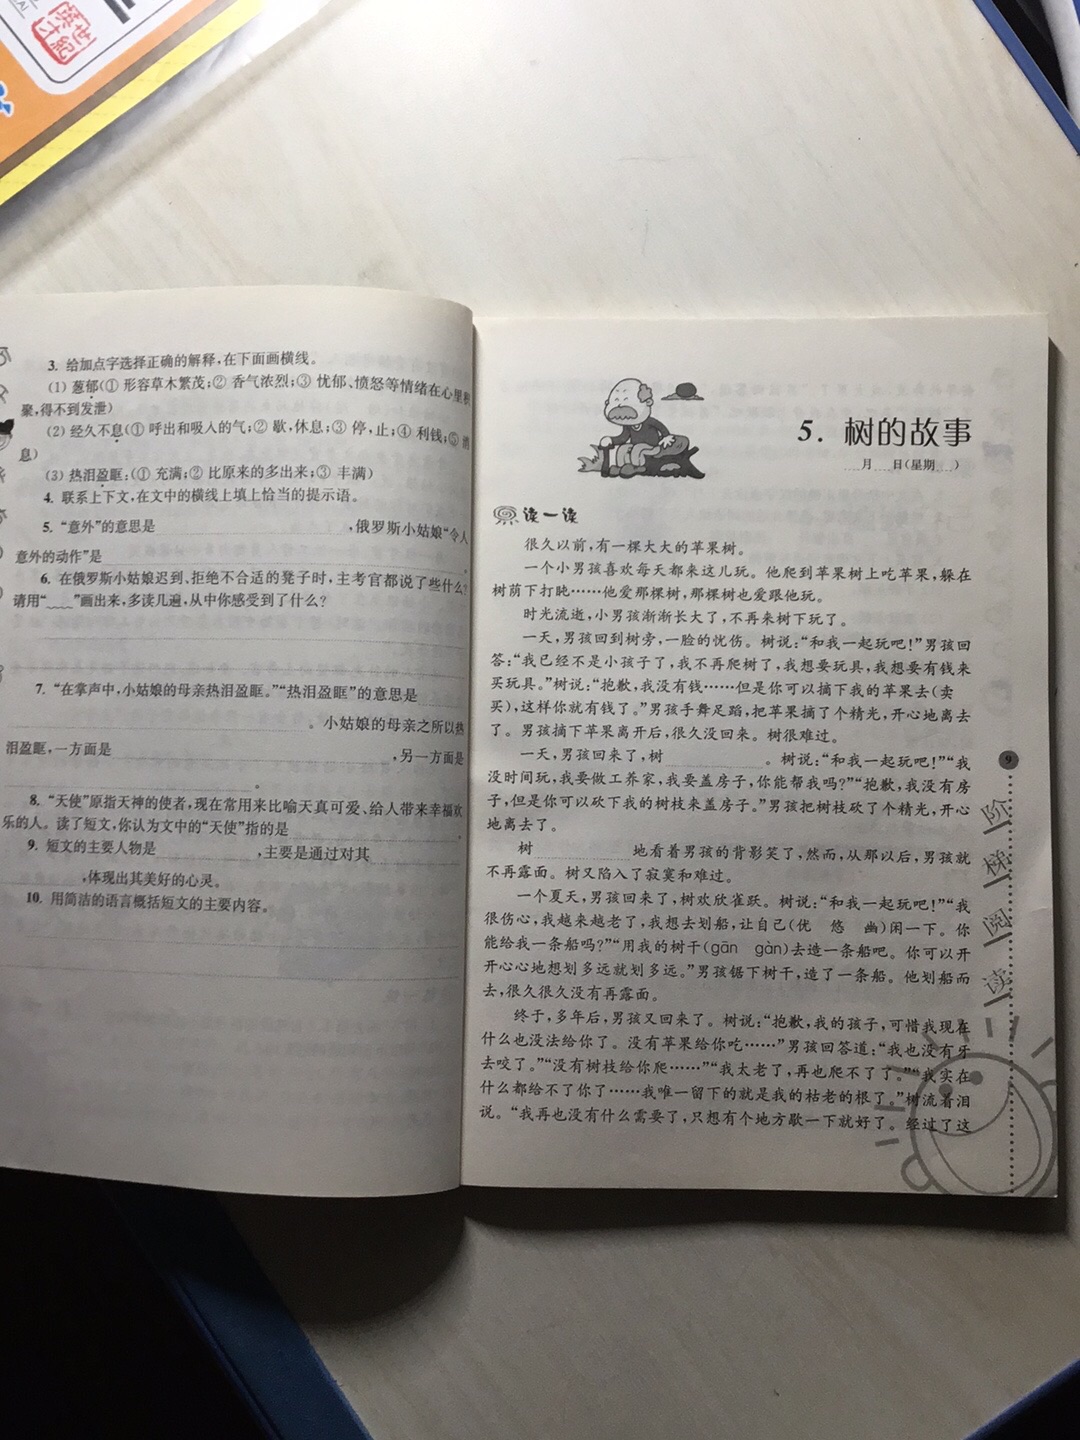 世紀英才
3. 给加点字选择正确的解释,在下面画横线。
(1) 葱郁(① 形容草木繁茂;② 香气浓烈;③ 忧郁、愤怒等情绪在心里积
聚,得不到发泄)
(2) 经久不息(① 呼出和吸入的气;② 歇,休息;③ 停,止;④ 利钱;⑤ 消
息)
(3) 热泪盈眶:(① 充满;② 比原来的多出来;③ 丰满)
4. 联系上下文,在文中的横线上填上恰当的提示语。
5. “意外”的意思是 ,俄罗斯小姑娘“令人
意外的动作”是 。
6. 在俄罗斯小姑娘迟到、拒绝不合适的凳子时,主考官都说了些什么?
请用“﹏﹏”画出来,多读几遍,从中你感受到了什么?
7. “在掌声中,小姑娘的母亲热泪盈眶。”“热泪盈眶”的意思是
。小姑娘的母亲之所以热
泪盈眶,一方面是 ,另一方面是
。
8. “天使”原指天神的使者,现在常用来比喻天真可爱、给人带来幸福欢
乐的人。读了短文,你认为文中的“天使”指的是 。
9. 短文的主要人物是 ,主要是通过对其
,体现出其美好的心灵。
10. 用简洁的语言概括短文的主要内容。
5. 树的故事
月 日(星期 )
读一读
很久以前,有一棵大大的苹果树。
一个小男孩喜欢每天都来这儿玩。他爬到苹果树上吃苹果,躲在
树荫下打盹……他爱那棵树,那棵树也爱跟他玩。
时光流逝,小男孩渐渐长大了,不再来树下玩了。
一天,男孩回到树旁,一脸的忧伤。树说:“和我一起玩吧!”男孩回
答:“我已经不是小孩子了,我不再爬树了,我想要玩具,我想要有钱来
买玩具。”树说:“抱歉,我没有钱……但是你可以摘下我的苹果去(卖
买),这样你就有钱了。”男孩手舞足蹈,把苹果摘了个精光,开心地离去
了。男孩摘下苹果离开后,很久没回来。树很难过。
一天,男孩回来了,树 。树说:“和我一起玩吧!”“我
没时间玩,我要做工养家,我要盖房子,你能帮我吗?”“抱歉,我没有房
子,但是你可以砍下我的树枝来盖房子。”男孩把树枝砍了个精光,开心
地离去了。
树 地看着男孩的背影笑了,然而,从那以后,男孩就
不再露面。树又陷入了寂寞和难过。
一个夏天,男孩回来了,树欢欣雀跃。树说:“和我一起玩吧!”“我
很伤心,我越来越老了,我想去划船,让自己(优 悠 幽)闲一下。你
能给我一条船吗?”“用我的树干(gān gàn)去造一条船吧。你可以开
开心心地想划多远就划多远。”男孩锯下树干,造了一条船。他划船而
去,很久很久没有再露面。
终于,多年后,男孩又回来了。树说:“抱歉,我的孩子,可惜我现在
什么也没法给你了。没有苹果给你吃……”男孩回答道:“我也没有牙
去咬了。”“没有树枝给你爬……”“我太老了,再也爬不了了。”“我实在
什么都给不了你了……我唯一留下的就是我的枯老的根了。”树流着泪
说。“我再也没有什么需要了,只想有个地方歇一下就好了。经过了这
9
阶
梯
阅
读